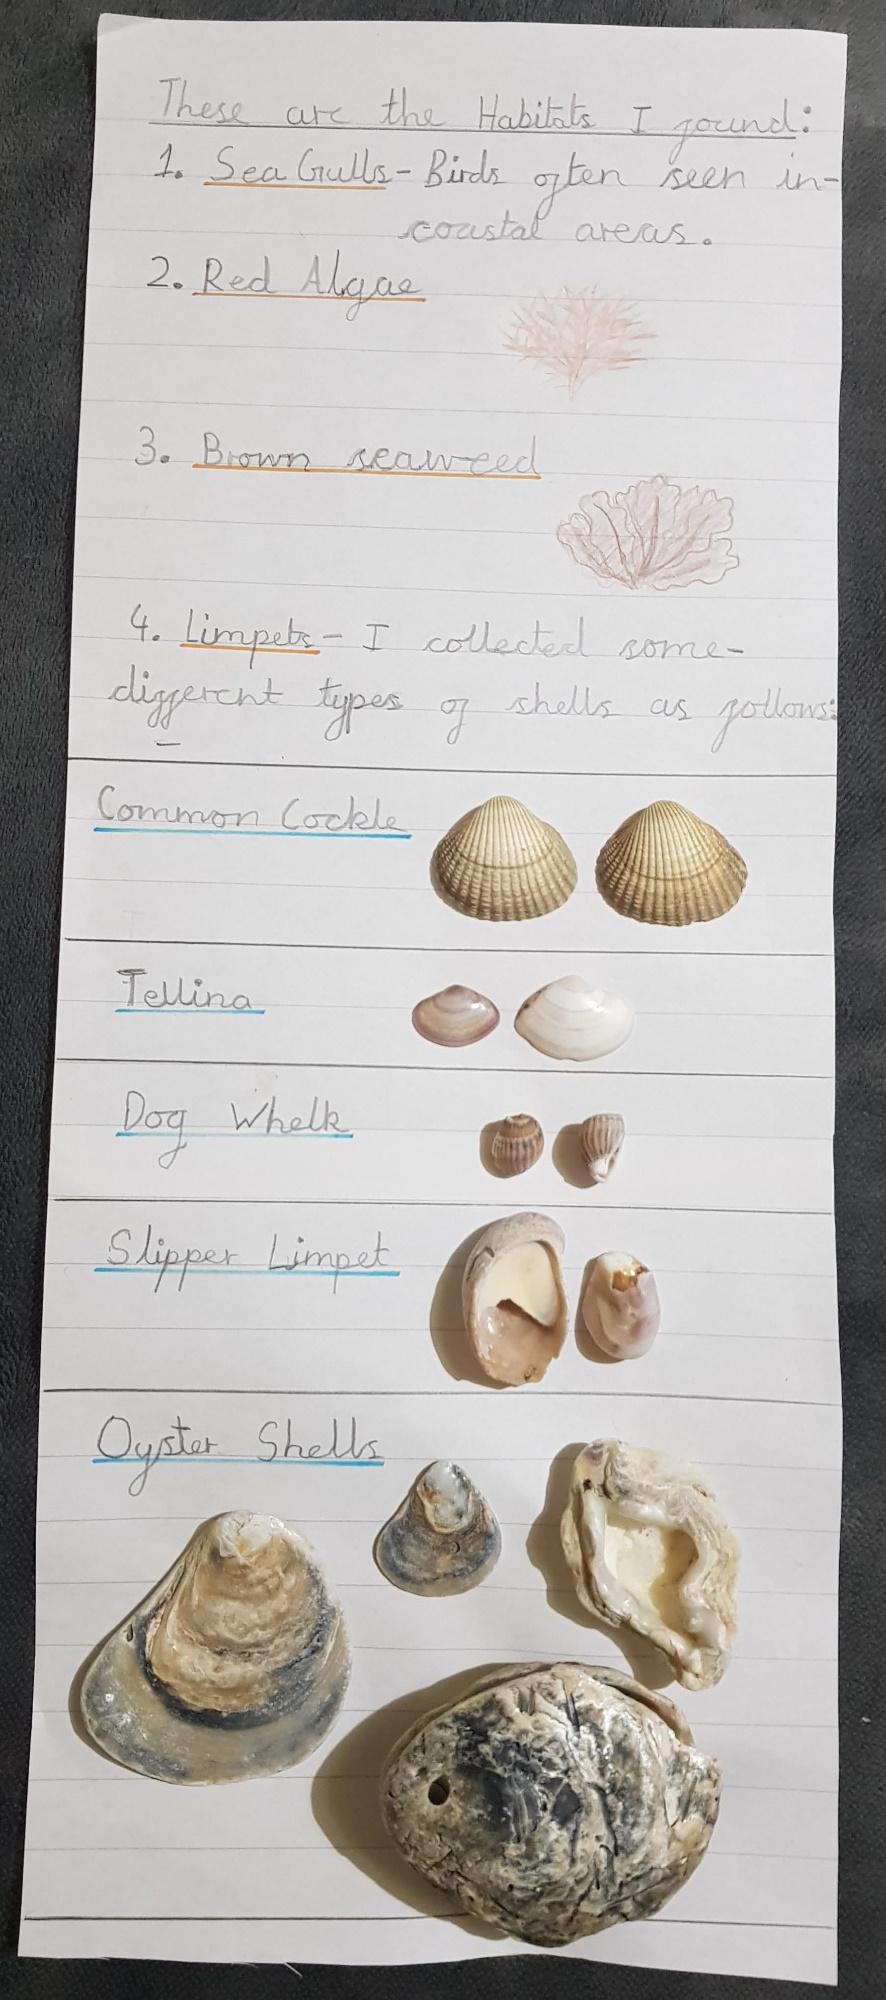 These are the Habitats I found:
1. Sea Gulls - Birds often seen in-
coastal areas.
2. Red Algae
3. Brown seaweed
4. Limpets - I collected some-
different types of shells as follows:
-
Common Cockle
Tellina
Dog Whelk
Slipper Limpet
Oyster Shells